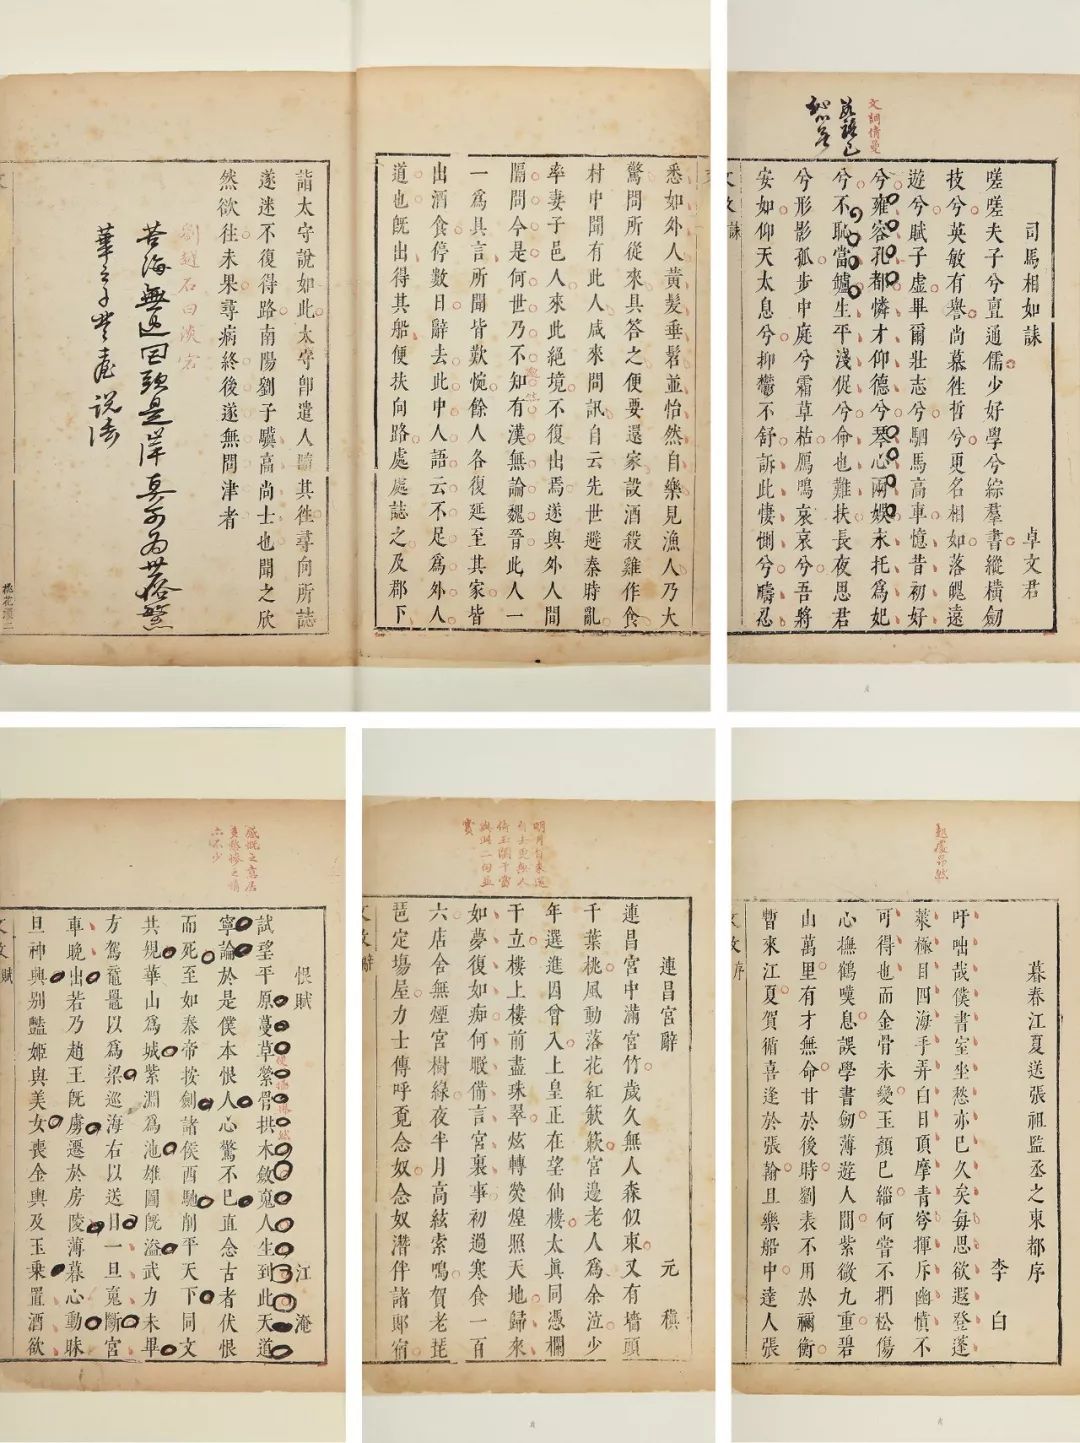 悉如外人黃髮垂髫並怡然自樂見漁人乃大
驚問所從來具答之便要還家設酒殺雞作食
村中聞有此人咸來問訊自云先世避秦時亂
率妻子邑人來此絕境不復出焉遂與外人間
隔問今是何世乃不知有漢無論魏晉此人一
一爲具言所聞皆歎惋餘人各復延至其家皆
出酒食停數日辭去此中人語云不足爲外人
道也旣出得其船便扶向路處處誌之及郡下
詣太守說如此太守卽遣人隨其徃尋向所誌
遂迷不復得路南陽劉子驥高尚士也聞之欣
然欲往未果尋病終後遂無問津者
劉越石曰淡宕
苦海無邊回頭是岸
說法
桃花源二
文詞情曼
司馬相如誄
卓文君
嗟嗟夫子兮亶通儒少好學兮綜羣書縱橫劒
技兮英敏有譽尚慕徃哲兮更名相如落魄遠
遊兮賦子虛畢爾壯志兮駟馬高車憶昔初好
兮雍容孔都憐才仰德兮琴心兩娛永托爲妃
兮不恥當鑪生平淺促兮命也難扶長夜思君
兮形影孤步中庭兮霜草枯鴈鳴哀哀兮吾將
安如仰天太息兮抑鬱不舒訴此悽惻兮疇忍
文致
誄
感慨之意居
多愁慘之情
亦不少
恨賦
江淹
試望平原蔓草縈骨拱木斂䰟人生到此天道
寧論於是僕本恨人心驚不已直念古者伏恨
而死至如秦帝按劍諸侯西馳削平天下同文
共規華山爲城紫淵爲池雄圖旣溢武力未畢
方駕黿鼉以爲梁巡海右以送日一旦䰟斷宮
車晚出若乃趙王旣虜遷於房陵薄暮心動昧
旦神興別豔姬與美女喪金輿及玉乗置酒欲
文致
賦
倚玉闌干當
與此二句並
賞
連昌宮辭
元稹
連昌宮中滿宮竹歲久無人森似束又有墻頭
千葉桃風動落花紅簌簌宮邊老人爲余泣少
年選進因曾入上皇正在望仙樓太眞同憑欄
干立樓上樓前盡珠翠炫轉熒煌照天地歸來
如夢復如痴何暇備言宮裏事初過寒食一百
六店舍無煙宮樹綠夜半月高絃索鳴賀老琵
琶定塲屋力士傳呼覓念奴念奴潛伴諸郎宿
文致
辭
起處昂然
暮春江夏送張祖監丞之東都序
李白
吁咄哉僕書室坐愁亦已久矣每思欲遐登蓬
萊極目四海手弄白日頂摩青穹揮斥幽憤不
可得也而金骨未變玉顏已緇何嘗不捫松傷
心撫鶴嘆息誤學書劒薄遊人間紫微九重碧
山萬里有才無命甘於後時劉表不用於禰衡
暫來江夏賀循喜逢於張翰且樂船中達人張
文致
序